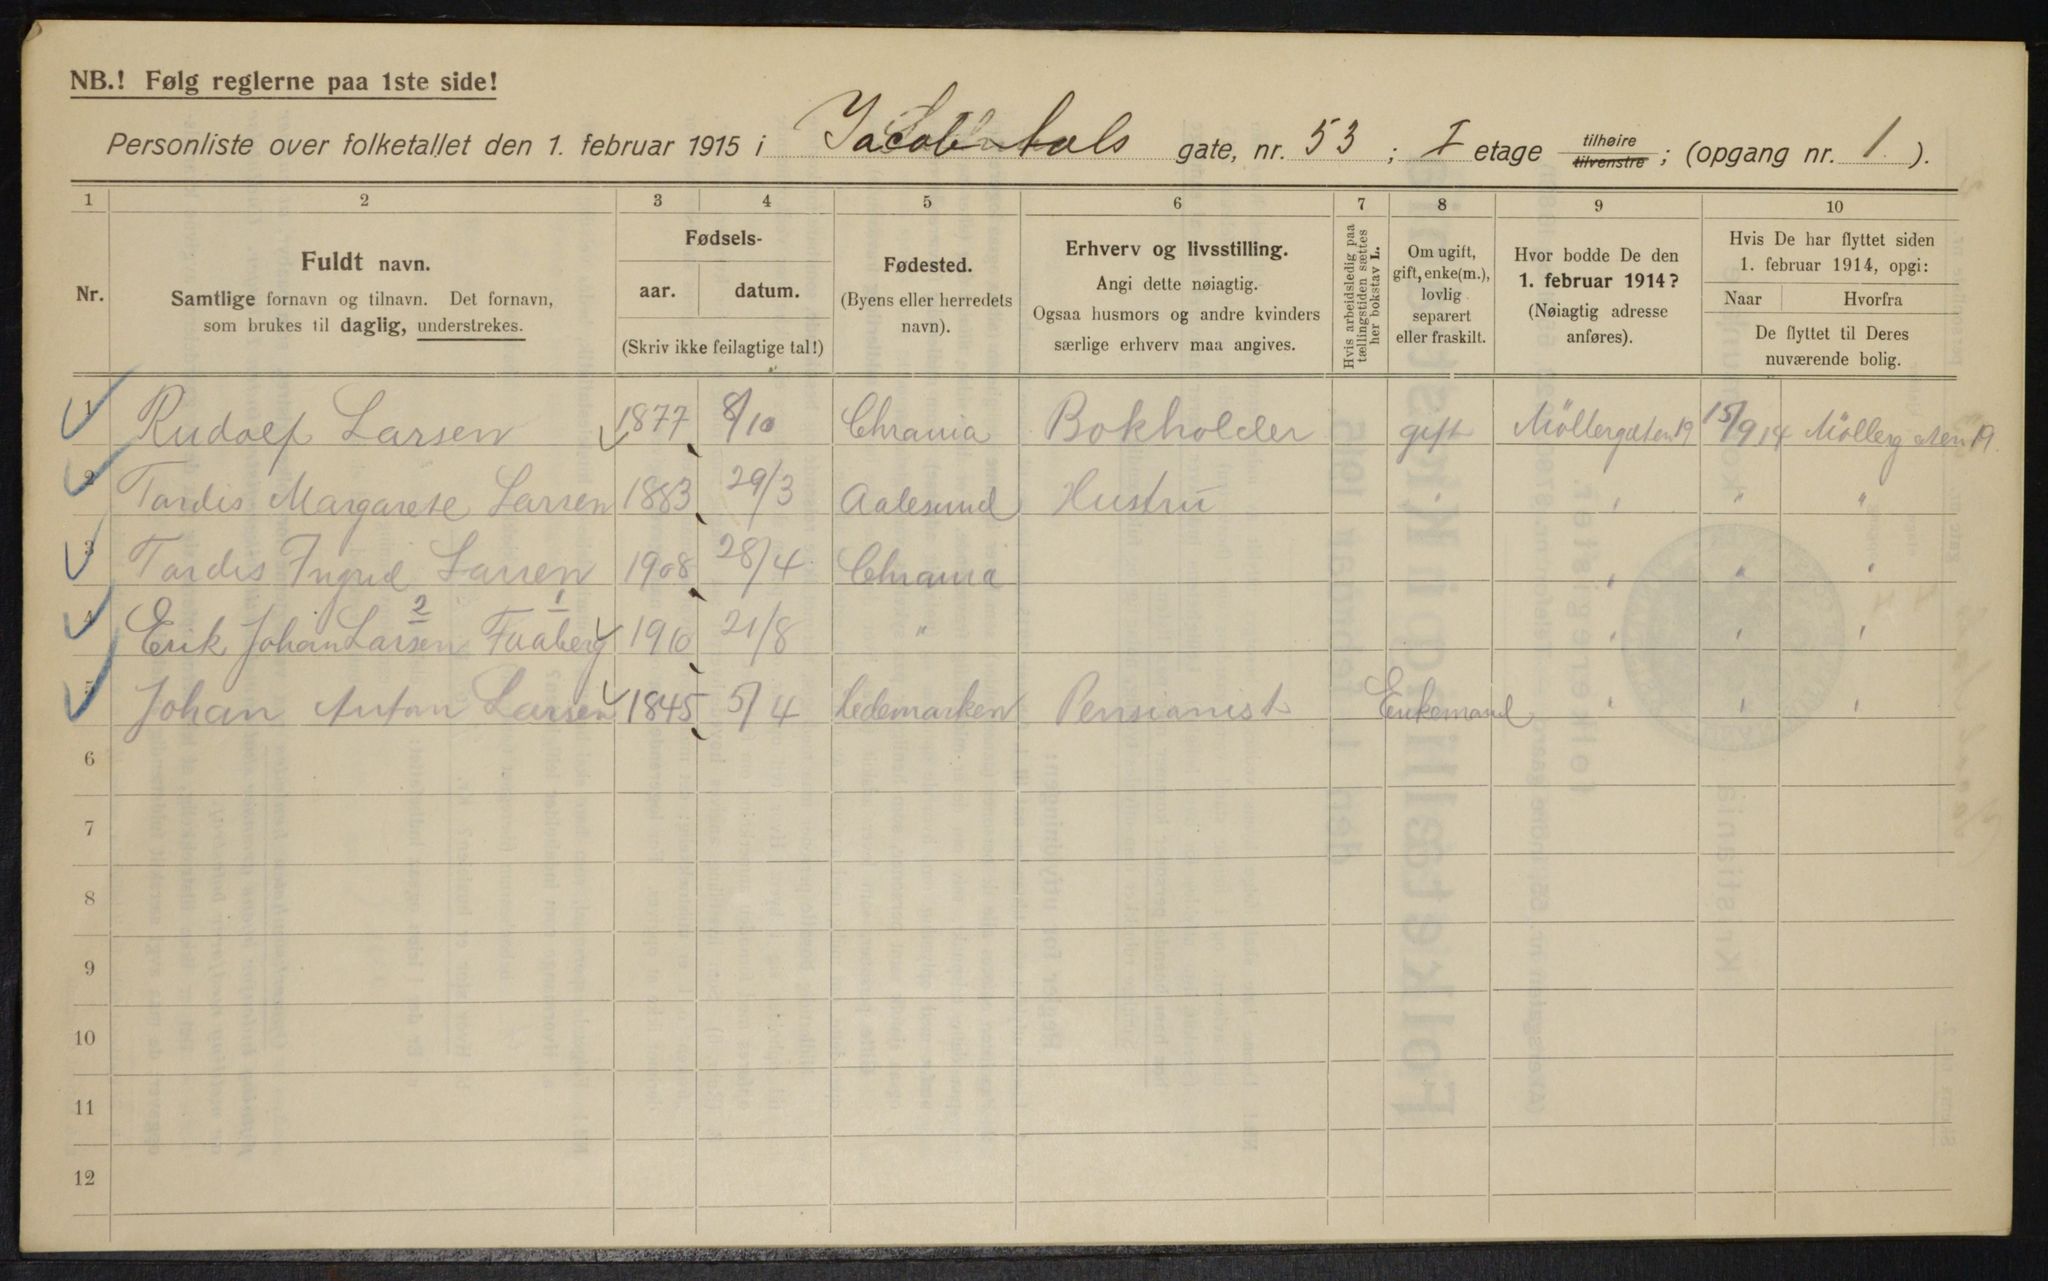 NB.! Følg reglerne paa 1ste side!
Personliste over folketallet den 1. februar 1915 i Jacob Aals gate, nr. 53; I etage tilhøire tilvenstre; (opgang nr. 1).
1 2 3 4 5 6 7 8 9 10
Nr.
Fuldt navn.
Samtlige fornavn og tilnavn. Det fornavn,
som brukes til daglig, understrekes.
Fødsels-
aar. datum.
(Skriv ikke feilagtige tal!)
Fødested.
(Byens eller herredets
navn).
Erhverv og livsstilling.
Angi dette nøiagtig.
Ogsaa husmors og andre kvinders
særlige erhverv maa angives.
Hvis arbeidsledig paa
tællingstiden sættes
her bokstav L.
Om ugift,
gift, enke(m.),
lovlig
separert
eller fraskilt.
Hvor bodde De den
1. februar 1914?
(Nøiagtig adresse
anføres).
Hvis De har flyttet siden
1. februar 1914, opgi:
Naar Hvorfra
De flyttet til Deres
nuværende bolig.
1 Rudolf Larsen 1877 8/10 Chrania Bokholder gift Möllergaten 19 15/9 14 Möllergaten 19.
2 Tordis Margarete Larsen 1883 29/3 Aalesund Hustru " " "
3 Tordis Ingrid Larsen 1908 28/4 Chrania " " "
2 1
4 Erik Johan Larsen Faaberg 1910 21/8 " " " "
5 Johan Anton Larsen 1845 5/4 Hedemarken Pensionist Enkemand " " "
6
7
8
9
10
11
12